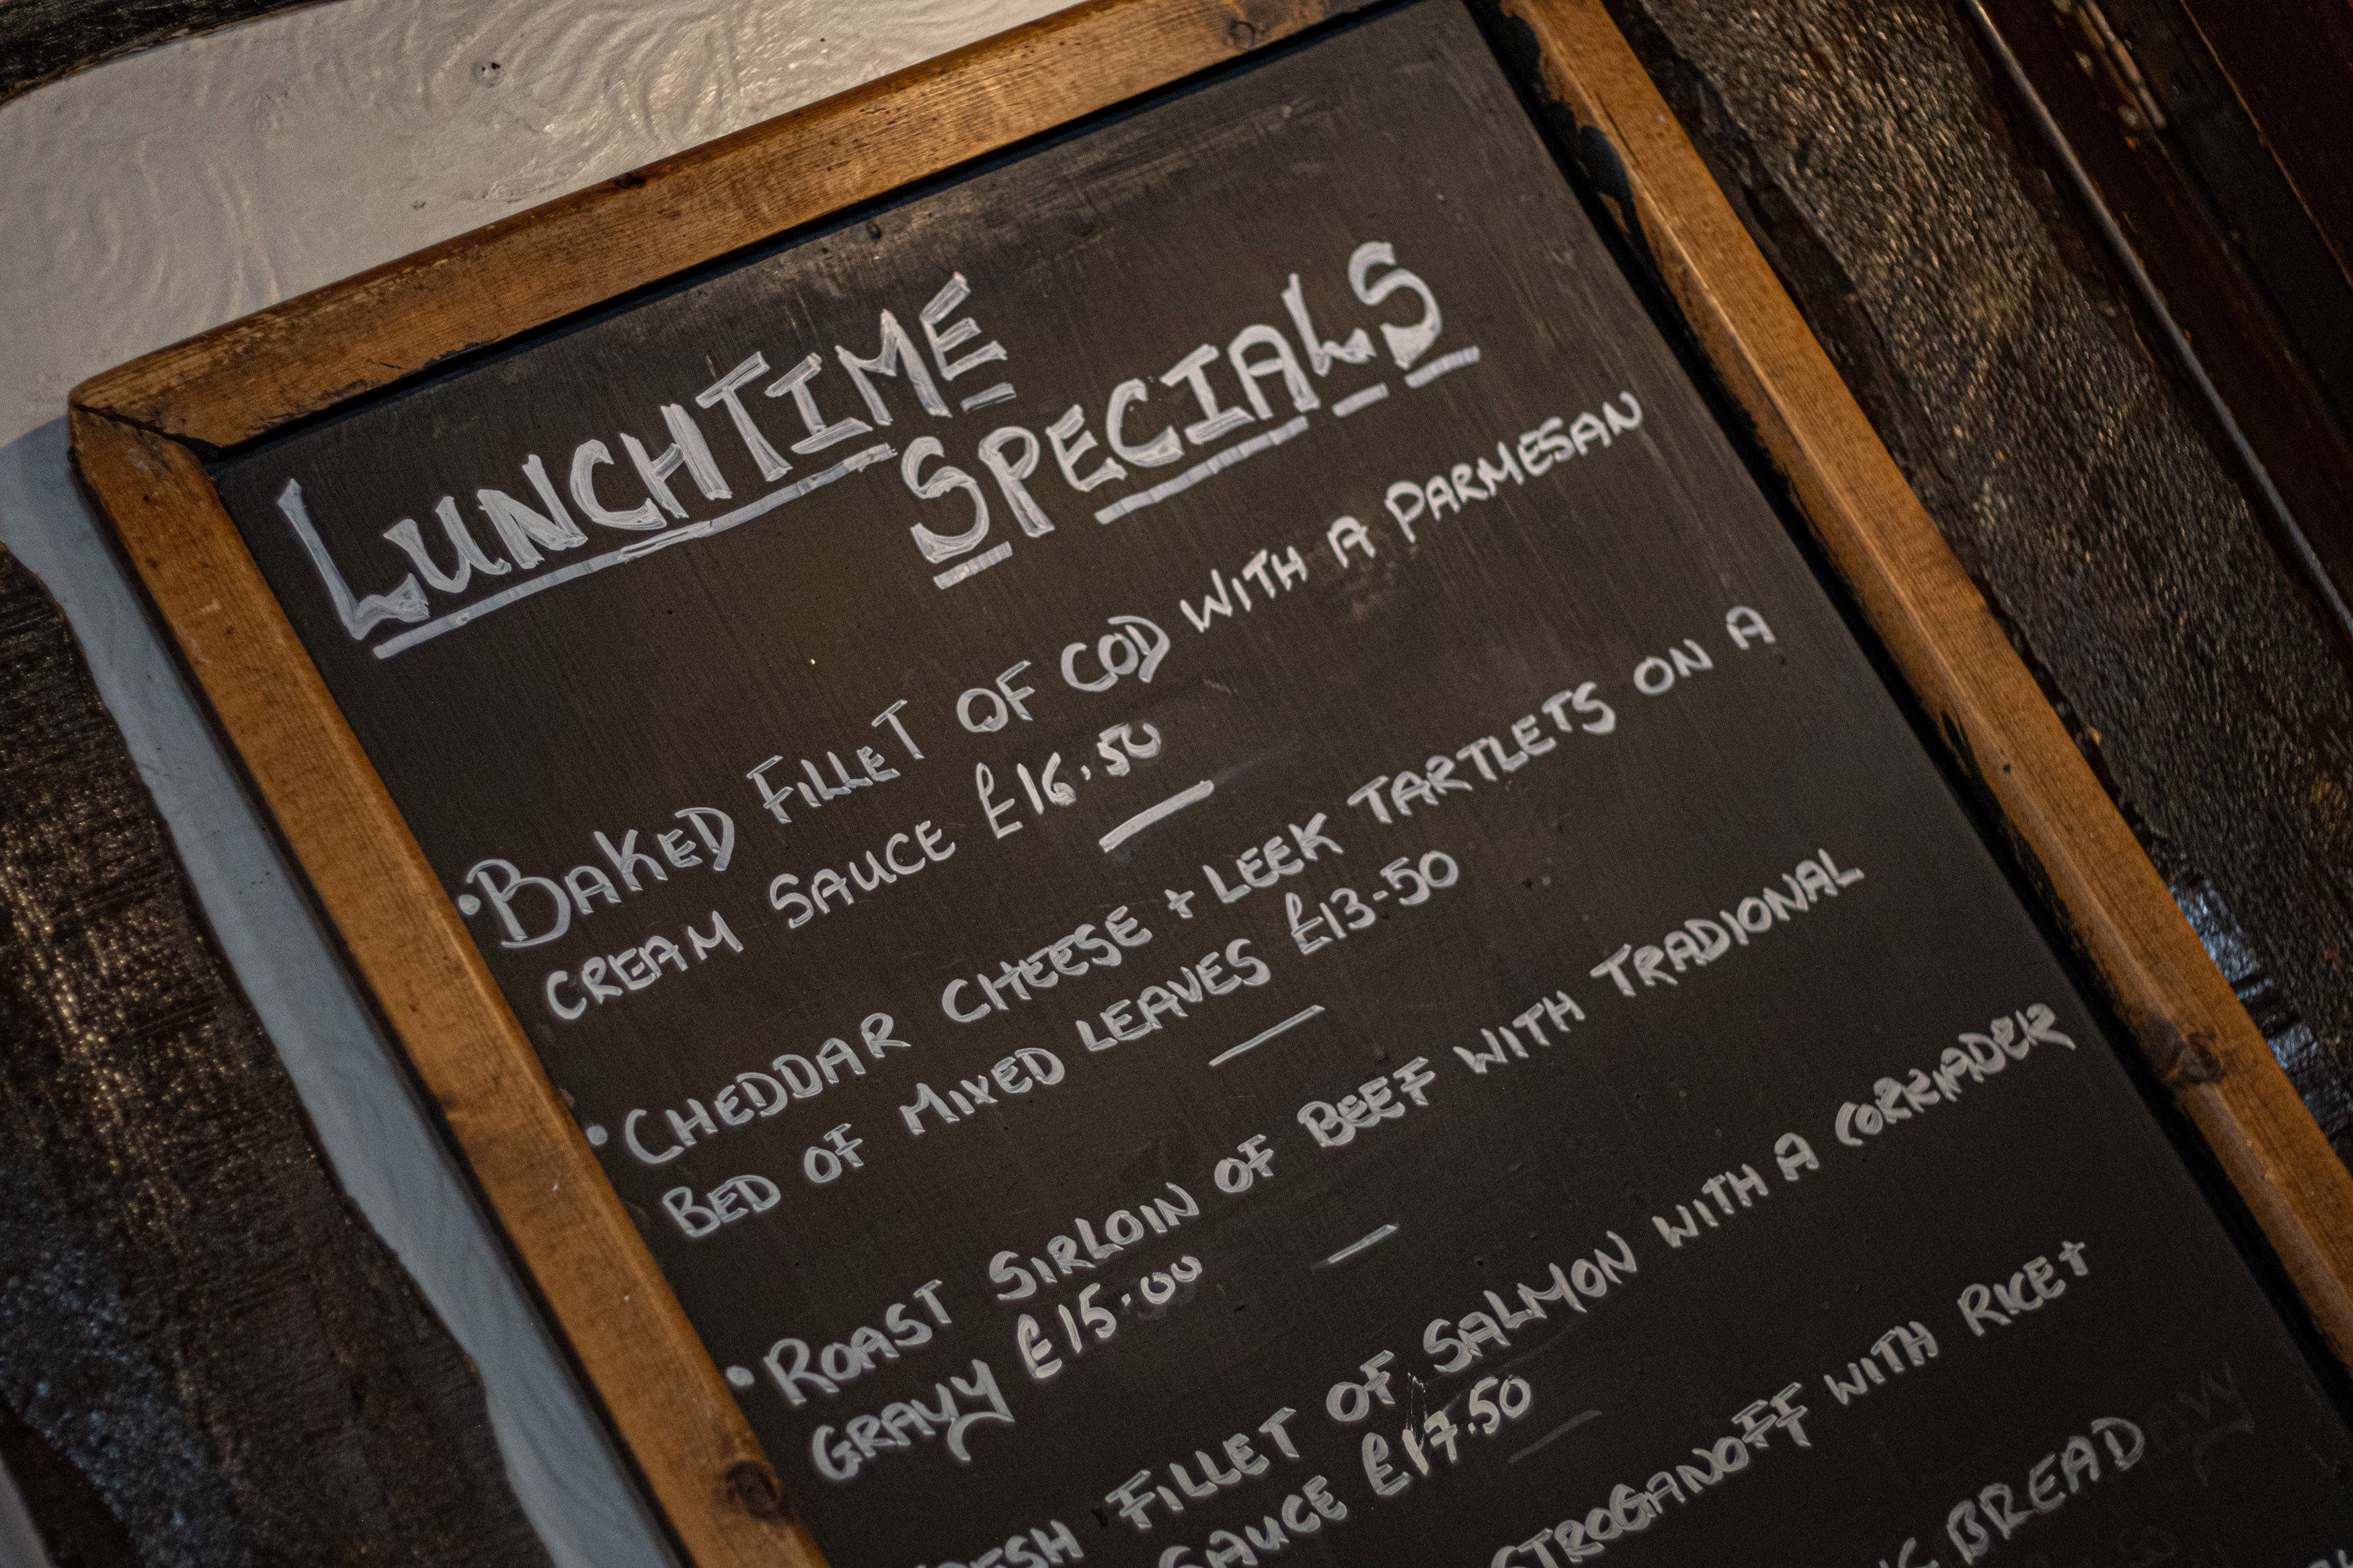 LUNCHTIME
SPECIALS
• BAKED FILLET OF COD WITH A PARMESAN
CREAM SAUCE £16.50
• CHEDDAR CHEESE + LEEK TARTLETS ON A
BED OF MIXED LEAVES £13-50
• ROAST SIRLOIN OF BEEF WITH TRADIONAL
GRAVY £15.00
FILLET OF SALMON WITH A
SAUCE £17.50
STROGANOFF WITH RICE +
BREAD